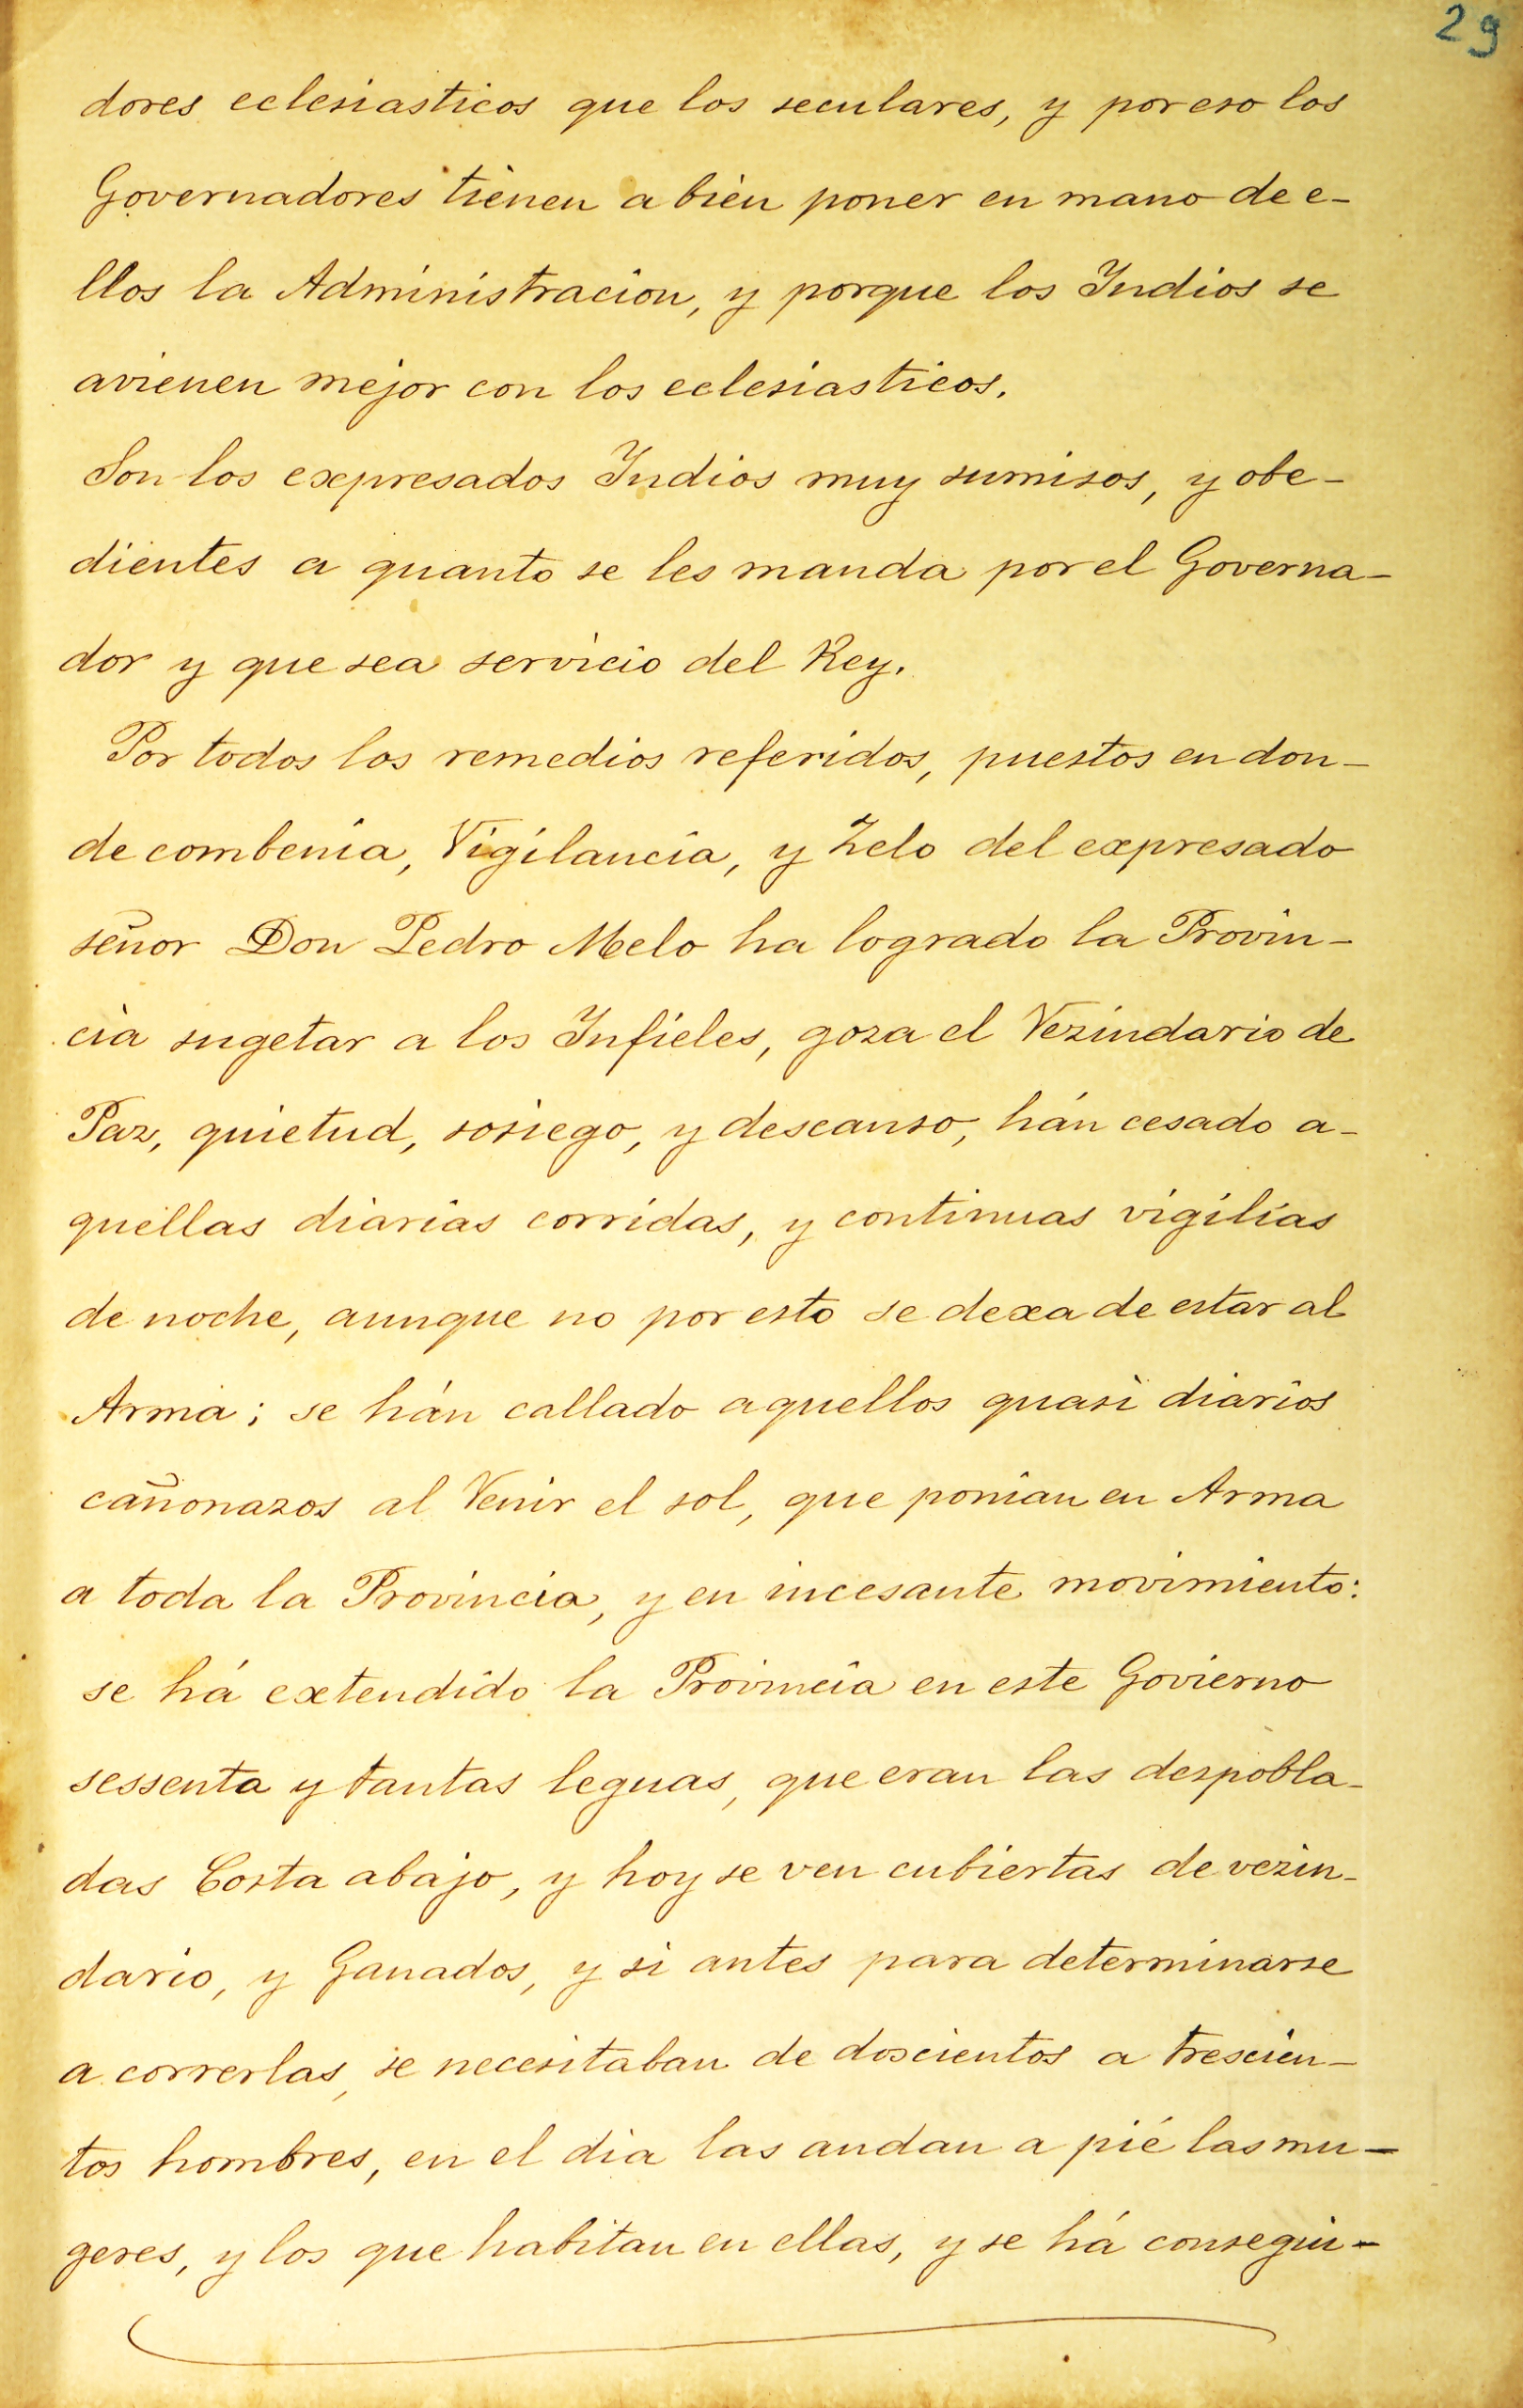 29
dores eclesiasticos que los seculares, y por eso los
Governadores tienen a bien poner en mano de e-
llos la Administracion, y porque los Indios se
avienen mejor con los eclesiasticos.
Son los expresados Indios muy sumisos, y obe-
dientes a quanto se les manda por el Governa-
dor y que sea servicio del Rey.
Por todos los remedios referidos, puestos en don-
de combenia, Vigilancia, y Zelo del expresado
señor Don Pedro Melo ha logrado la Provin-
cia sugetar a los Infieles, goza el Vezindario de
Paz, quietud, sosiego, y descanso, hán cesado a-
quellas diarias corridas, y continuas vigilias
de noche, aunque no por esto se dexa de estar al
Arma; se hán callado aquellos quasi diarios
cañonazos al Venir el sol, que ponian en Arma
a toda la Provincia, y en incesante movimiento:
se há extendido la Provincia en este Govierno
sessenta y tantas leguas, que eran las despobla-
das Costa abajo, y hoy se ven cubiertas de vezin-
dario, y Ganados, y si antes para determinarse
a correrlas, se necesitaban de doscientos a trescien-
tos hombres, en el dia las andan a pié las mu-
geres, y los que habitan en ellas, y se há consegui-